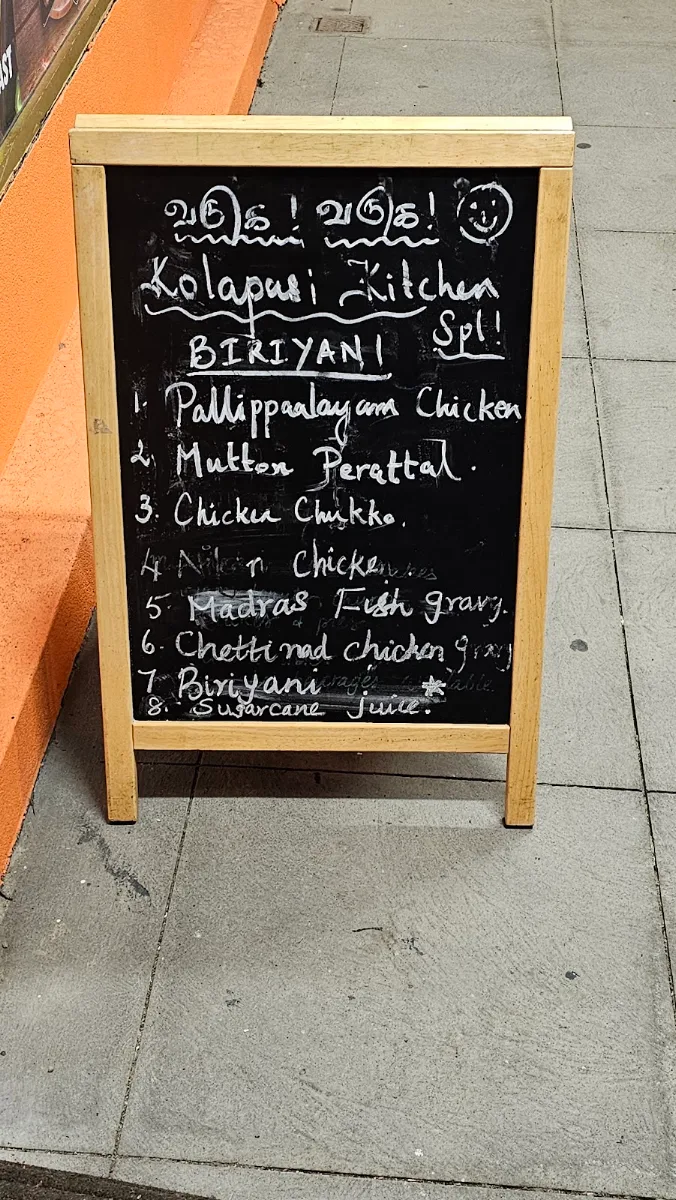 AST
வருக! வருக!
Kolapasi Kitchen
Spl!
BIRIYANI
1. Pallippaalayam Chicken
2. Mutton Perattal.
3. Chicken Chukko.
4 Chicke
5. Madras Fish gravy.
6. Chettinad chicken gravy
7 Biriyani *
8. Sugarcane juice.